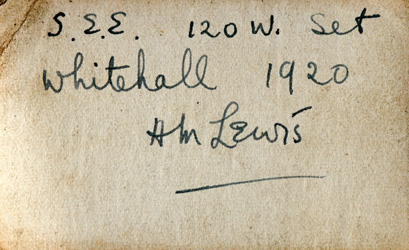 S.E.E. 120 W. Set
Whitehall 1920
HM Lewis